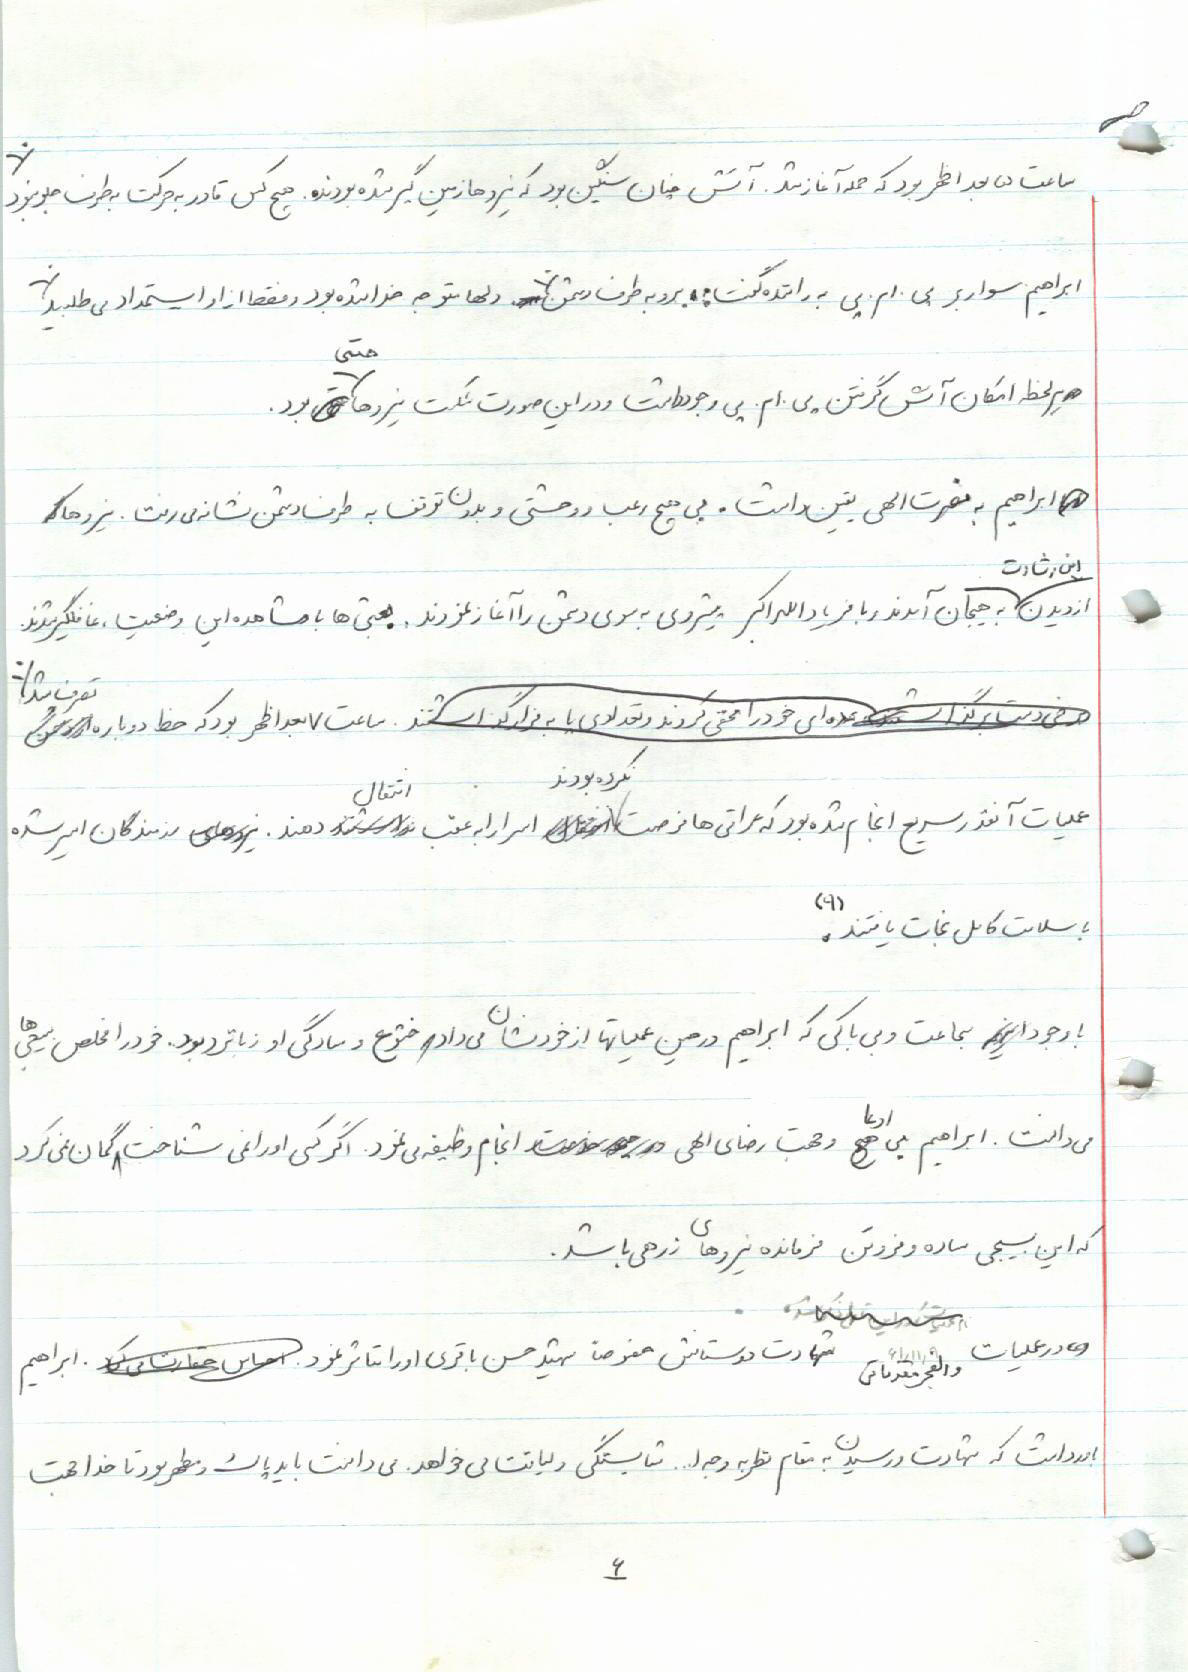 ساعت ۵ بعد اظهر بود که حمله آغاز شد. آتش چنان سنگین بود که نیروها زمین گیر شده بودند. هیچ کس قادر به حرکت به طرف جلو نبود
ابراهیم سوار بر پی.ام.پی به راننده گفت: برو به طرف دشمن دلها متوجه خدا شده بود و فقط از او استمداد می طلبید
هر لحظه امکان آتش گرفتن پی.ام.پی وجود داشت و در این صورت شکست نیروها حتمی بود.
ابراهیم به نصرت الهی یقین داشت. بی هیچ رعب و وحشتی و بدون توقف به طرف دشمن نشانه می رفت. نیروها که
از دیدن این رشادت به هیجان آمدند و با فریاد الله اکبر پیشروی به سوی دشمن را آغاز نمودند. بعثی ها با مشاهده این وضعیت، غافلگیر شدند
عده ای خود را مخفی کردند و تعدادی پا به فرار گذاشتند. ساعت ۷ بعد اظهر بود که خط دوباره تصرف شد
عملیات آنقدر سریع انجام شده بود که عراقی ها فرصت نکرده بودند اسرا را به عقب انتقال دهند. رزمندگان اسیر شده
با سلامت کامل نجات یافتند. (۹)
با وجود شجاعت و بی باکی که ابراهیم در حین عملیاتها از خود نشان می داد، خشوع و سادگی او زبانزد بود. خود را مخلص بسیجی ها
می دانست. ابراهیم بی ادعا و جهت رضای الهی انجام وظیفه می نمود. اگر کسی او را نمی شناخت گمان نمی کرد
که این بسیجی ساده و فروتن فرمانده نیروهای زرهی باشد.
در عملیات والفجر مقدماتی شهادت دوستانش خصوصاً شهید حسن باقری او را متاثر نمود. ابراهیم
باور داشت که شهادت و رسیدن به مقام نظر به وجه ا... شایستگی و لیاقت می خواهد. می دانست باید پاک و مطهر بود تا خدا جهت
۶